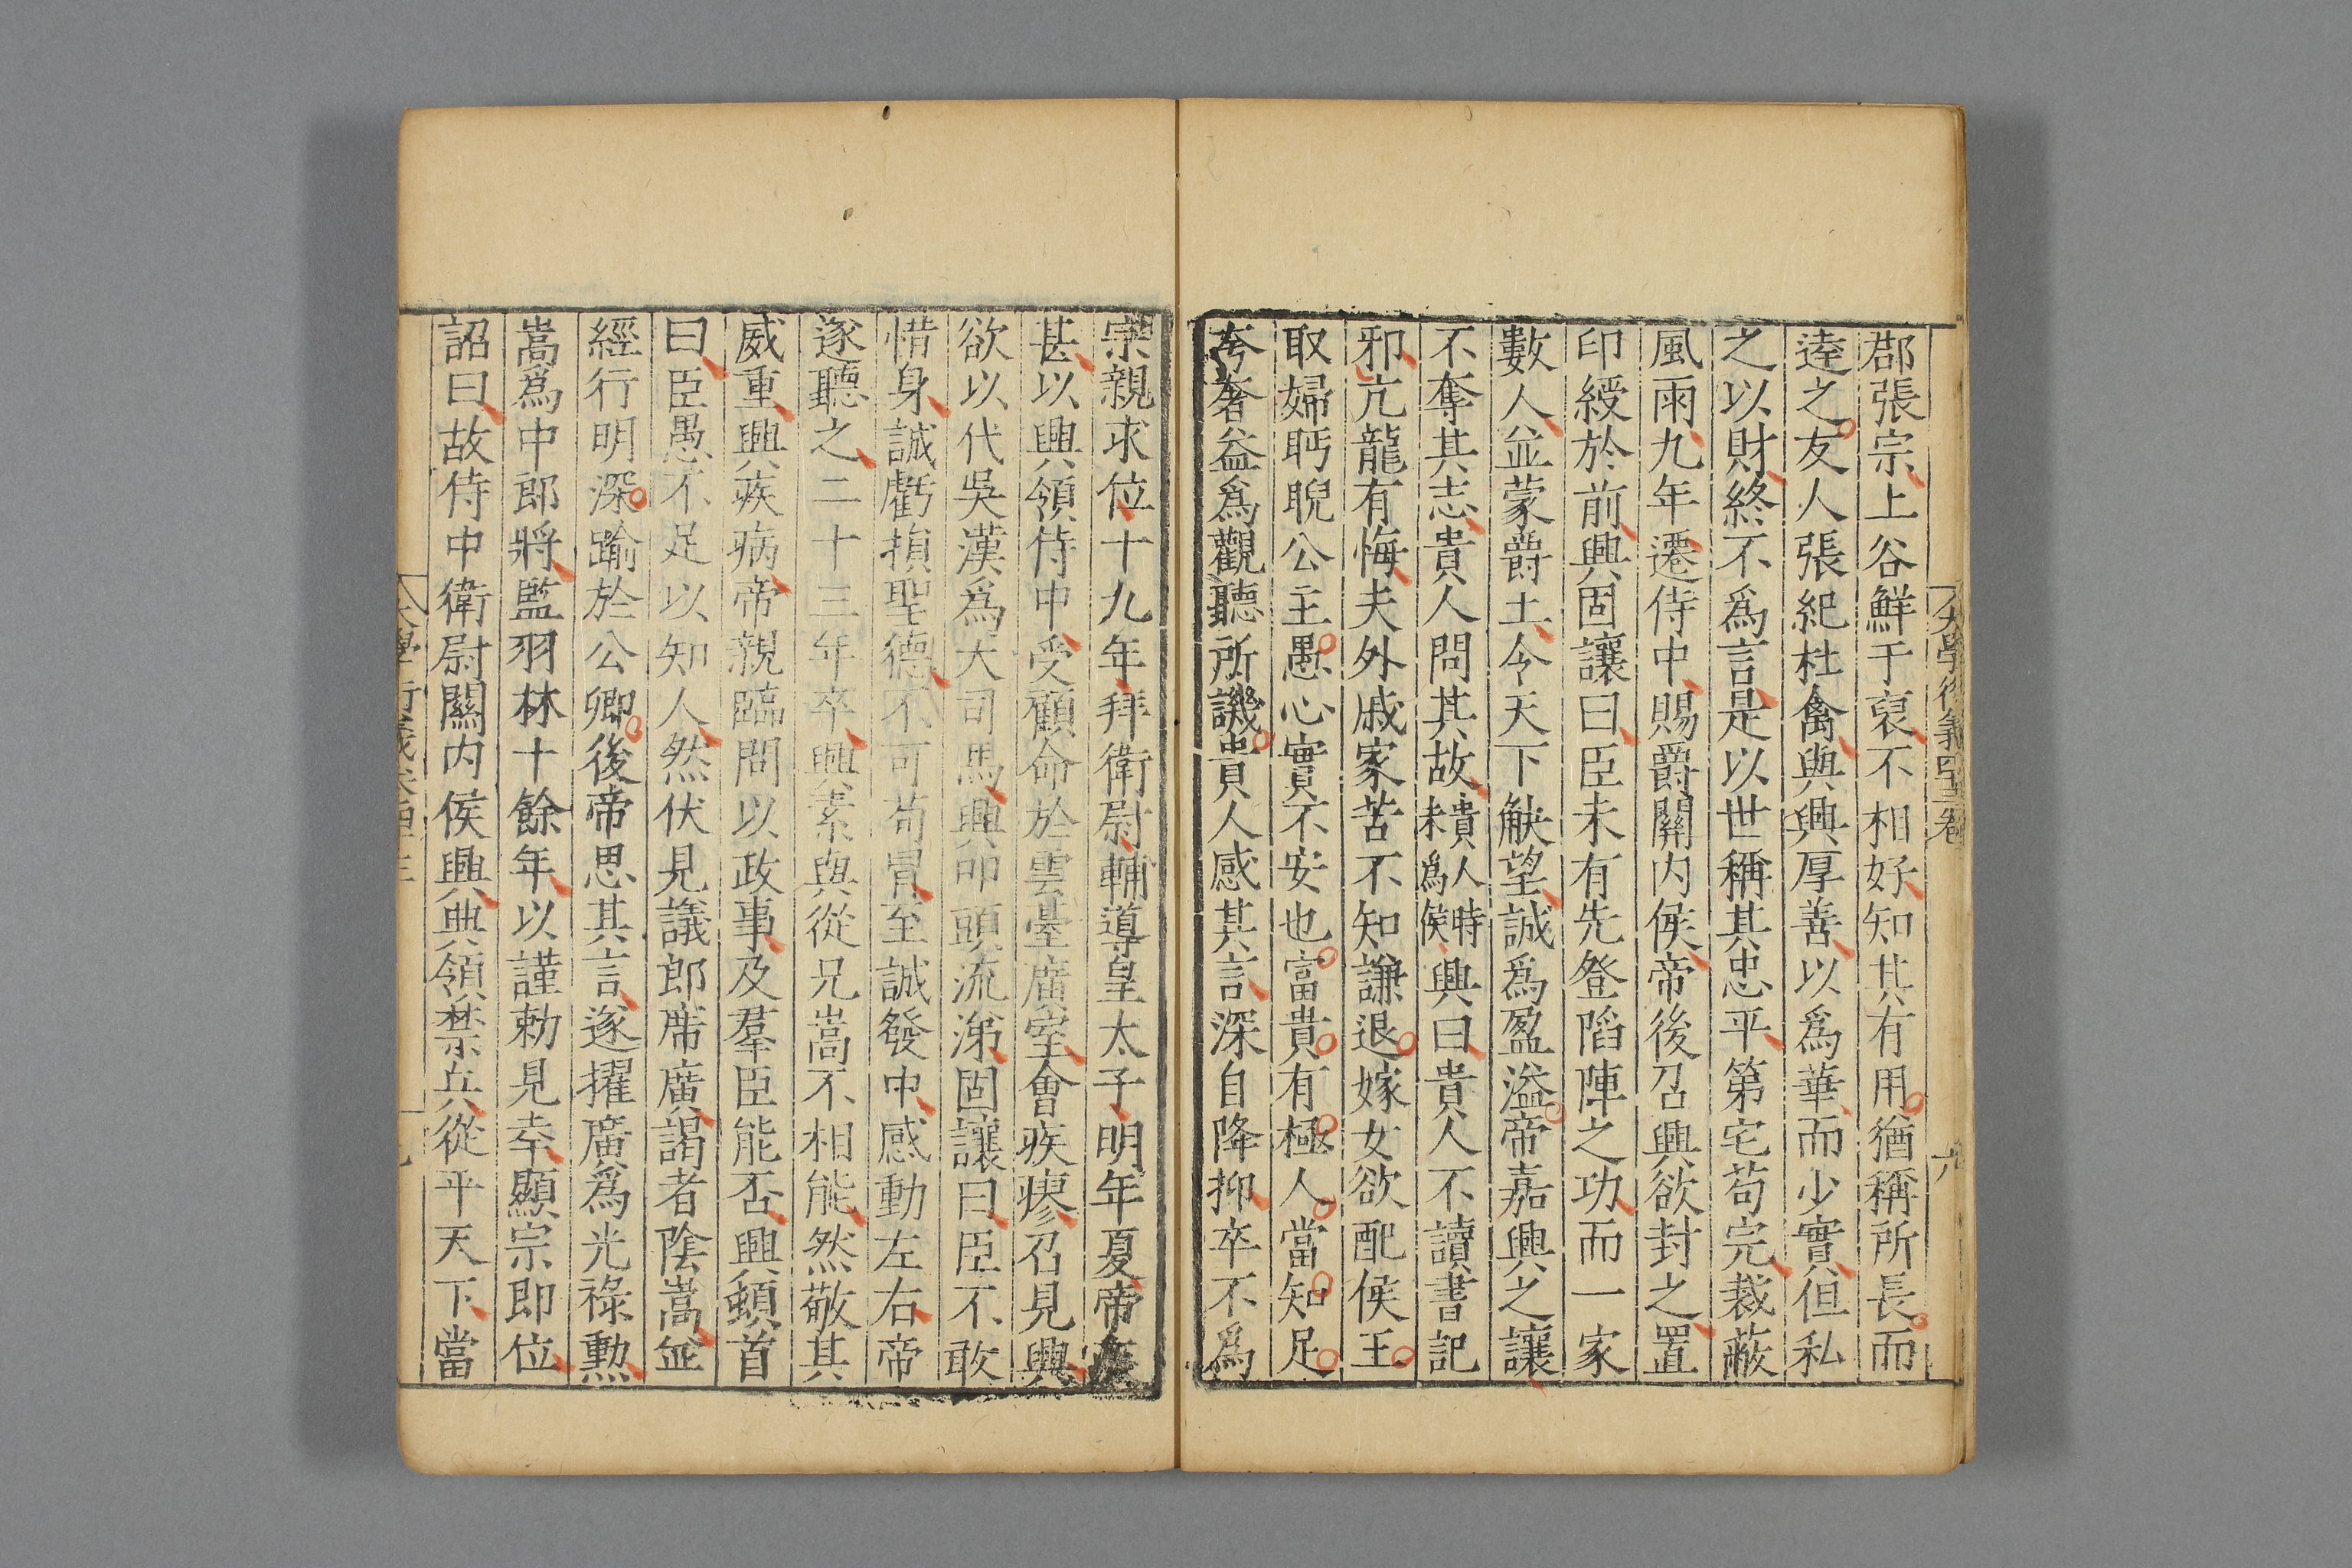 郡張宗上谷鮮于裒不相好知其有用猶稱所長而
逹之友人張紀杜禽與興厚善以爲華而少實但私
之以財終不爲言是以世稱其忠平第宅苟完裁蔽
風雨九年遷侍中賜爵關内侯帝後召興欲封之置
印綬於前興固讓曰臣未有先登陷陣之功而一家
數人並蒙爵土令天下觖望誠爲盈溢帝嘉興之讓
不奪其志貴人問其故貴人時未爲侯興曰貴人不讀書記
邪亢龍有悔夫外戚家苦不知謙退嫁女欲配侯王
取婦眄睨公主愚心實不安也富貴有極人當知足
夸奢益爲觀聽所譏貴人感其言深自降抑卒不爲
宗親求位十九年拜衛尉輔導皇太子明年夏帝疾
甚以興領侍中受顧命於雲臺廣室會疾瘳召見興
欲以代吳漢爲大司馬興叩頭流涕固讓曰臣不敢
惜身誠虧損聖德不可苟冒至誠發中感動左右帝
遂聽之二十三年卒興素與從兄嵩不相能然敬其
威重興疾病帝親臨問以政事及羣臣能否興頓首
曰臣愚不足以知人然伏見議郎席廣謁者陰嵩並
經行明深踰於公卿後帝思其言遂擢廣爲光祿勲
嵩爲中郎將監羽林十餘年以謹勅見幸顯宗即位
詔曰故侍中衛尉關内侯興典領禁兵從平天下當